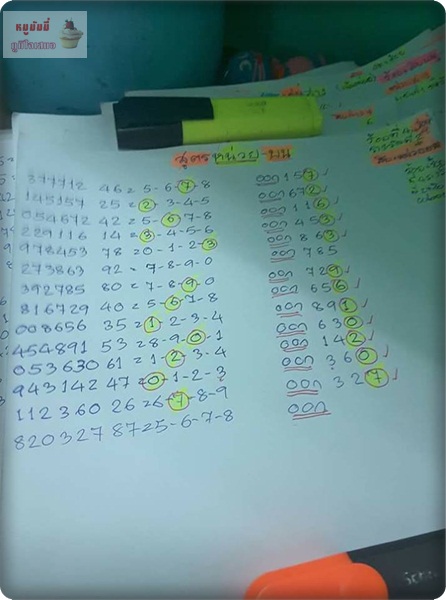 หมูบันมี่
ภูมิใจเสนอ
สูตรหน่วยบน
377712 46=5-6-7-8 ออก 157
145157 25=2-3-4-5 ออก 672
054672 42=5-6-7-8 ออก 116
229116 14=3-4-5-6 ออก 453
978453 78=0-1-2-3 ออก 863
273863 92=7-8-9-0 ออก 785
392785 80=7-8-9-0 ออก 729
816729 40=5-6-7-8 ออก 656
008656 35=1-2-3-4 ออก 891
454891 53=8-9-0-1 ออก 630
053630 61=1-2-3-4 ออก 142
943142 47=0-1-2-3 ออก 360
112360 26=6-7-8-9 ออก 327
820327 87=5-6-7-8 ออก